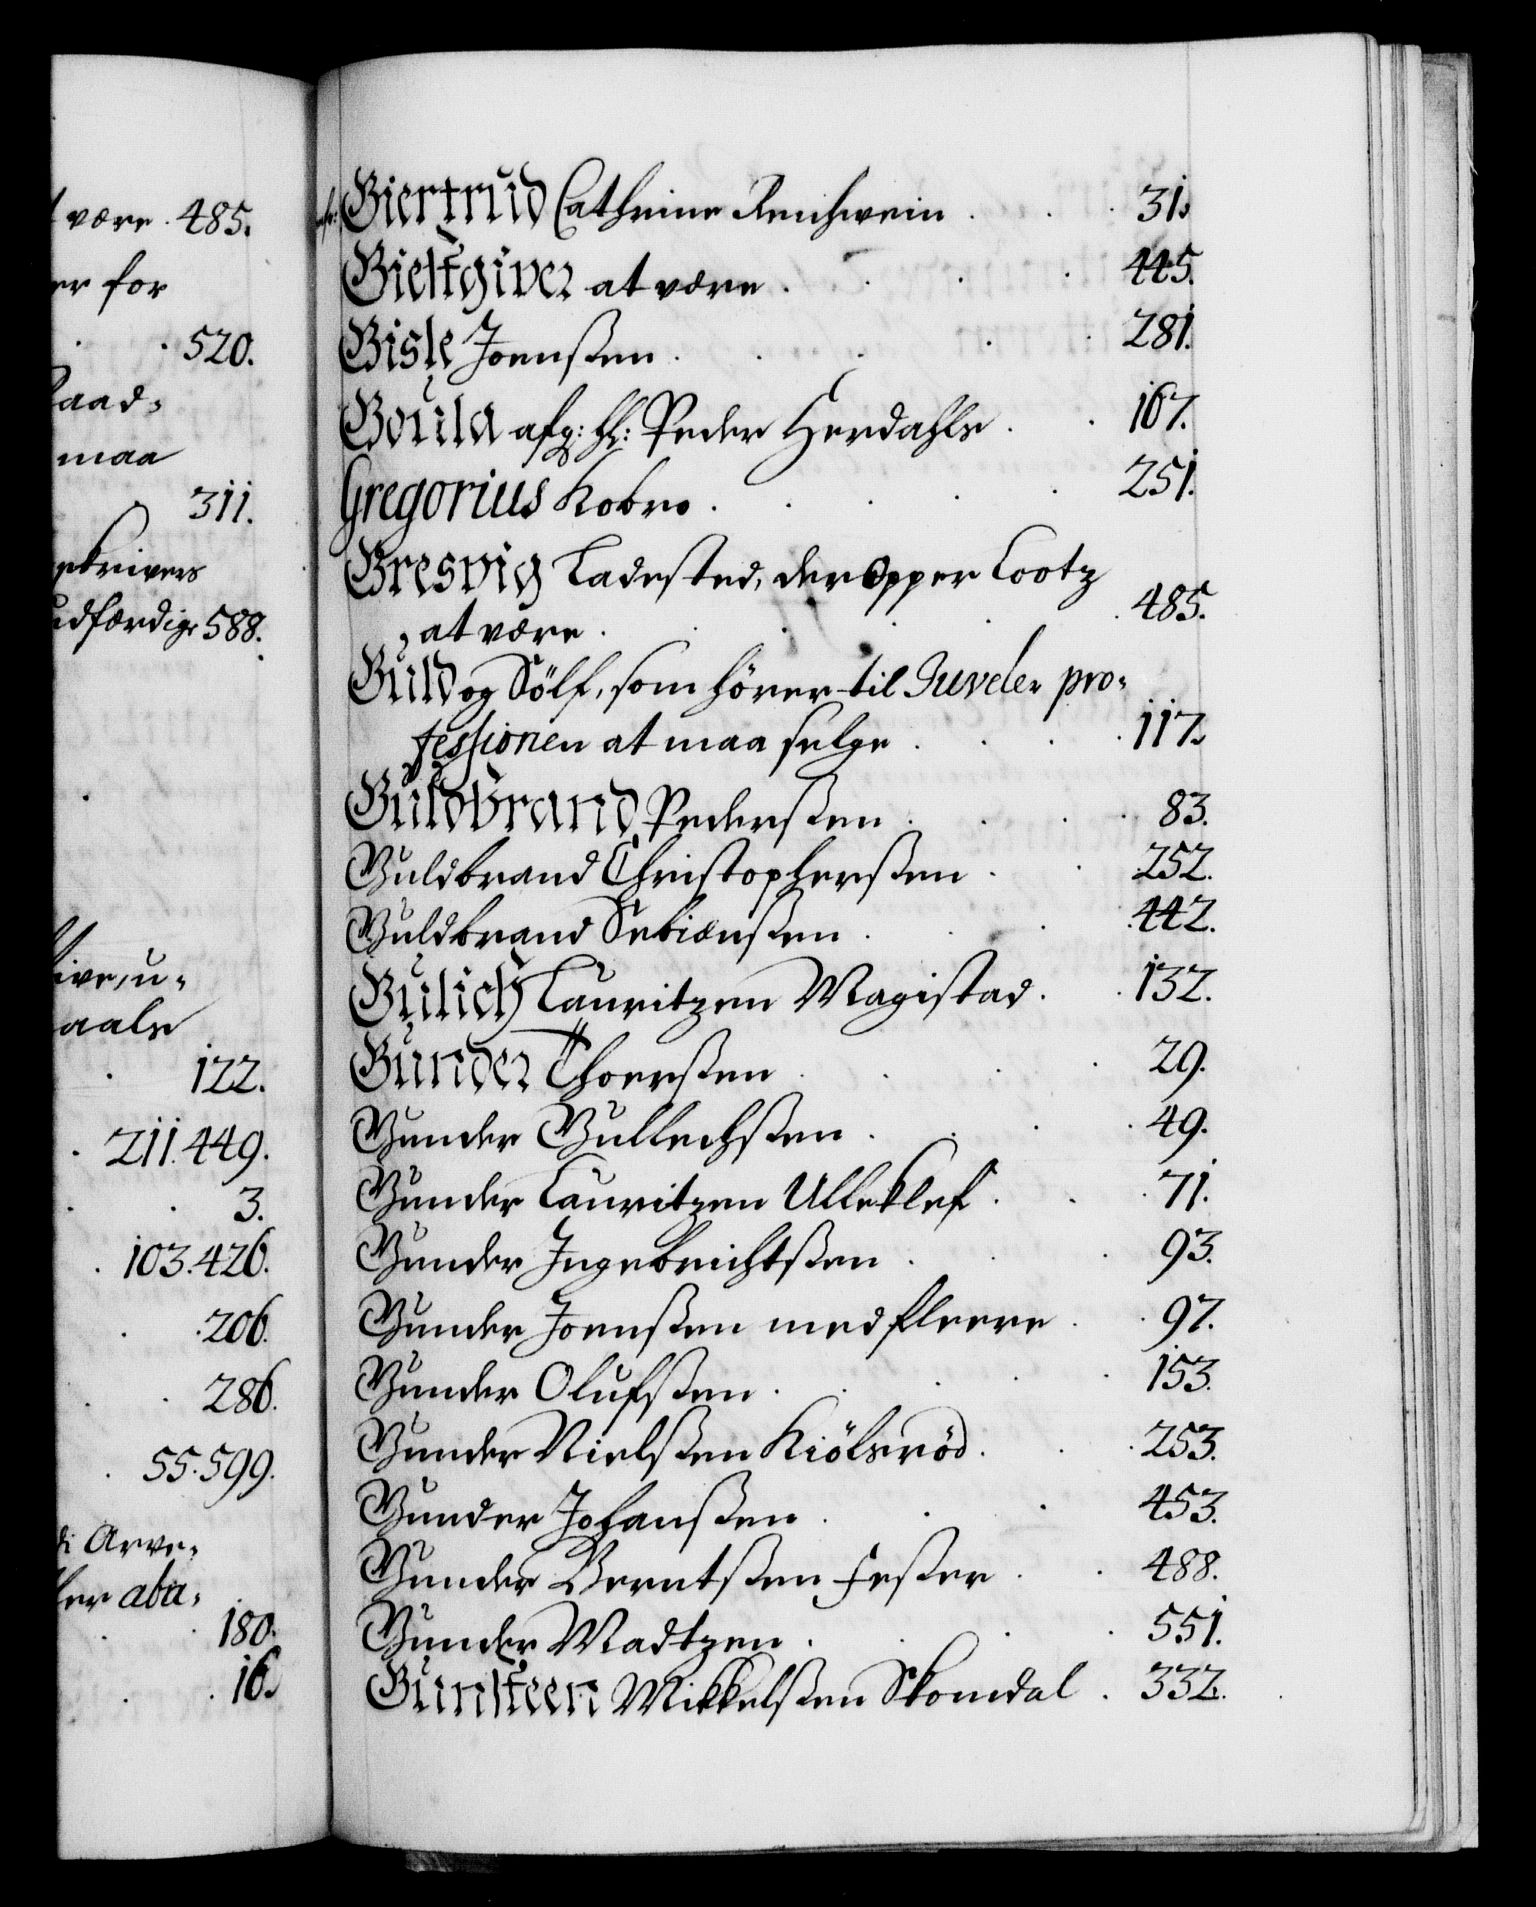 være . 485.
er for
520.
aad-
maa
311.
skrivers
udfærdige 588.
live, u-
aals
122.
211. 449.
3.
103. 426.
206.
286.
55. 599.
di Arve-
ler aba-
180.
16.
Giertrud Cathrine Reichwein . . . 31.
Giestgiver at være . . . 445.
Gisle Joensßen . . . 281.
Goula afg: hl: Peder Herdahls . . 167.
Gregorius Kobro . . . 251.
Gresvig Ladested, der Opper Lootz
at være . . . 485.
Guld og Sölf, som hörer til Juveler pro-
fessionen at maa selge . . . 117.
Guldbrand Pedersßen . . . 83.
Guldbrand Christophersßen . . 252.
Guldbrand Sebiænsßen . . . 442.
Gulich Lauritzen Magistad . . 132.
Gunder Thoersßen . . . 29.
Gunder Gullechsßen . . . 49.
Gunder Lauritzen Ulleklef . . . 71.
Gunder Ingebrichtsßen . . . 93.
Gunder Joensßen med fleere . . 97.
Gunder Olufsßen . . . 153.
Gunder Nielsßen Kiölsröd . . . 253.
Gunder Johansßen . . . 453.
Gunder Berntsßen Fester . . 488.
Gunder Madtzen . . . 551.
Gunsteen Mikkelsßen Skomdal . 332.